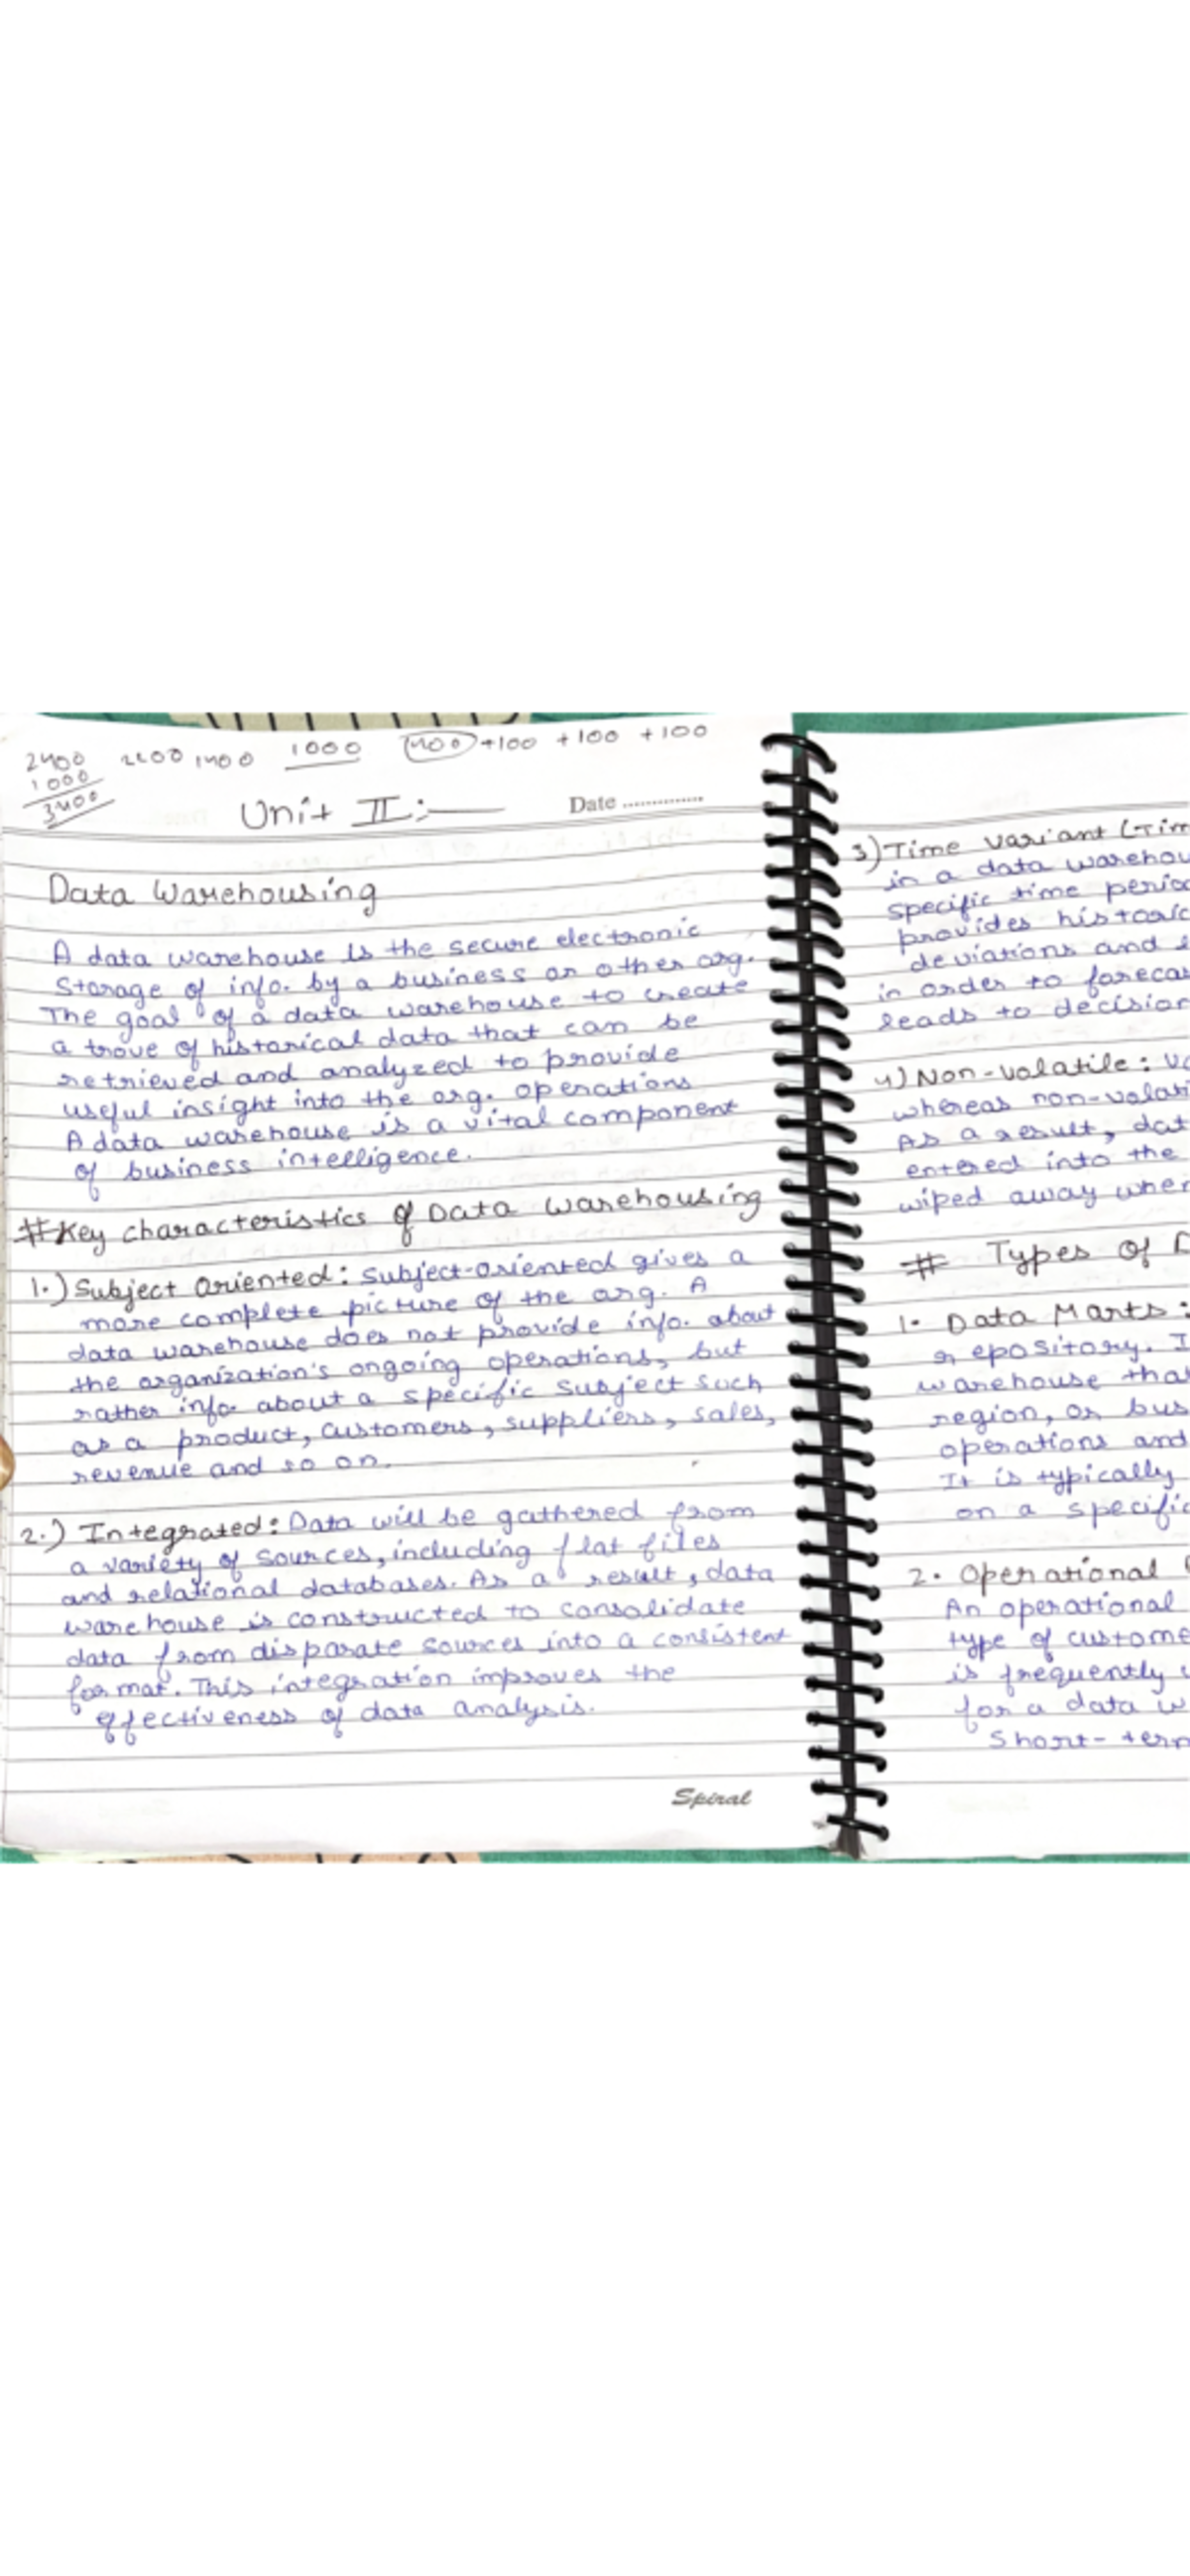 2400 2200 1400 1000 400 +100 +100 +100
1000
3400
Unit II :—
Date ..............
Data Warehousing
A data warehouse is the secure electronic
Storage of info. by a business or other org.
The goal of a data warehouse to create
a trove of historical data that can be
retrieved and analyzed to provide
useful insight into the org. operations
A data warehouse is a vital component
of business intelligence.
# Key characteristics of Data Warehousing
1.) Subject Oriented : Subject-oriented gives a
more complete picture of the org. A
data warehouse does not provide info. about
the organization's ongoing operations, but
rather info. about a specific subject such
as a product, customers, suppliers, sales,
revenue and so on.
2.) Integrated : Data will be gathered from
a variety of sources, including flat files
and relational databases. As a result, data
warehouse is constructed to consolidate
data from disparate sources into a consistent
format. This integration improves the
effectiveness of data analysis.
Spiral
3) Time variant (Tim
in a data warehou
specific time perio
provides historic
deviations and
in order to forecas
leads to decision
4) Non-volatile :
whereas non-volati
As a result, dat
entered into the
wiped away when
# Types of D
1. Data Marts :
repository. I
warehouse that
region, or bus
operations and
It is typically
on a specific
2. Operational
An operational
type of custome
is frequently
for a data w
Short-term